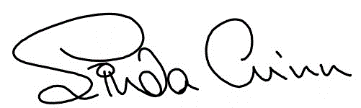 Linda Quinn